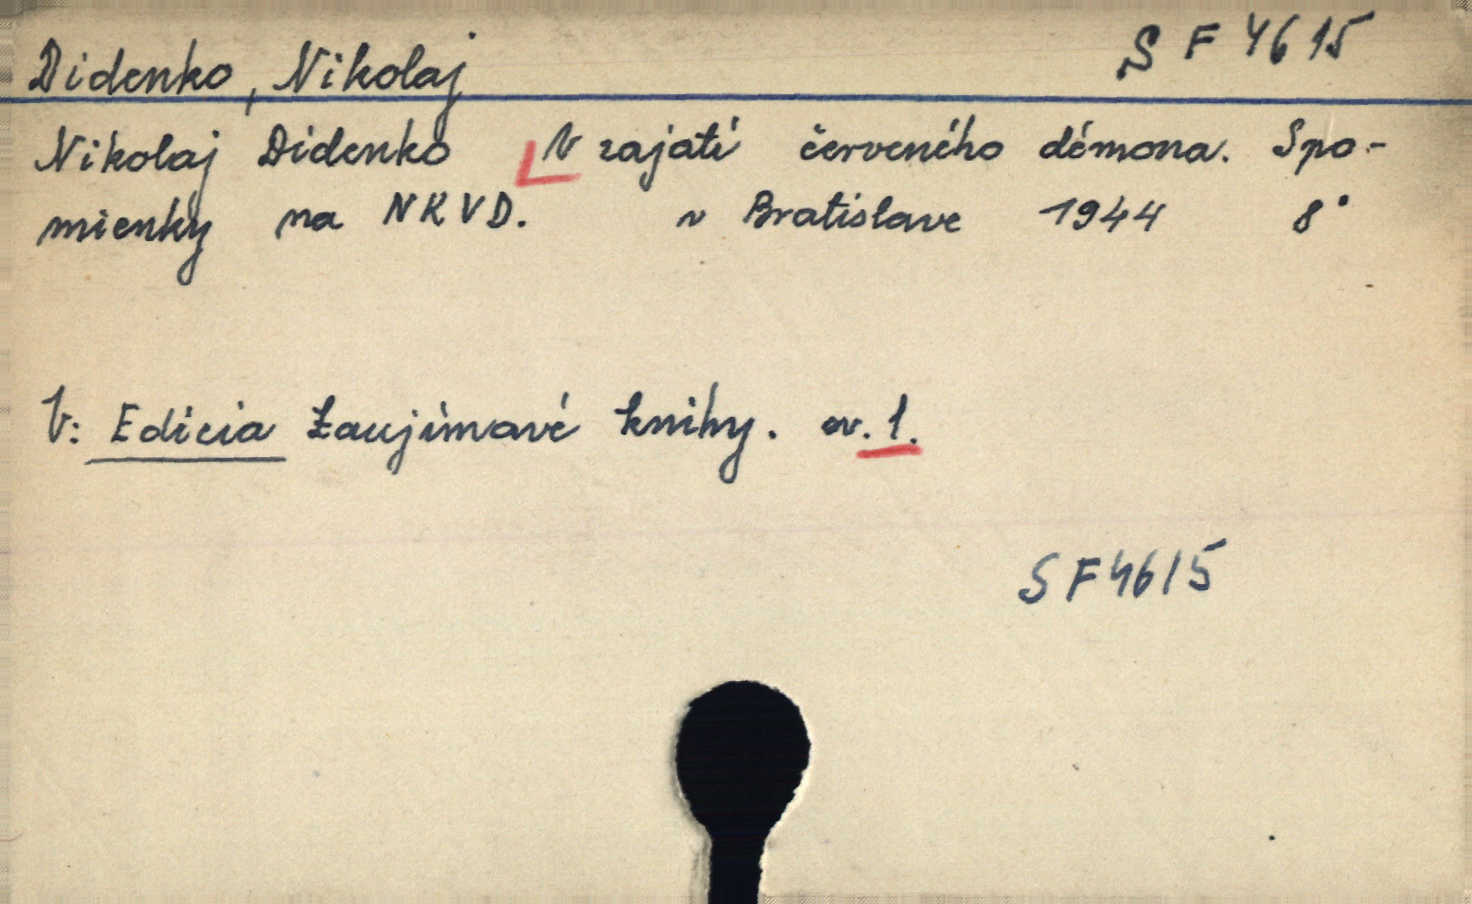 Didenko, Nikolaj SF 4615
Nikolaj Didenko V zajatí červeného démona. Spo-
mienky na NKVD. v Bratislave 1944 8°
V: Edicia Zaujímavé knihy. sv. 1.
SF4615